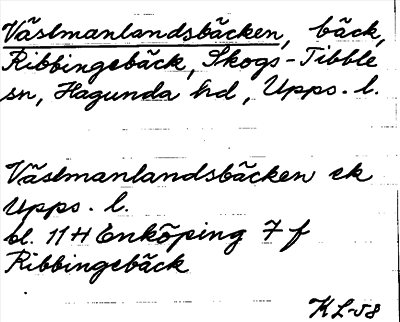 Västmanlandsbäcken, bäck,
Ribbingebäck, Skogs-Tibble
sn, Hagunda hd, Upps. l.
Västmanlandsbäcken ek
Upps. l.
bl. 11H Enköping 7 f
Ribbingebäck
KL-58